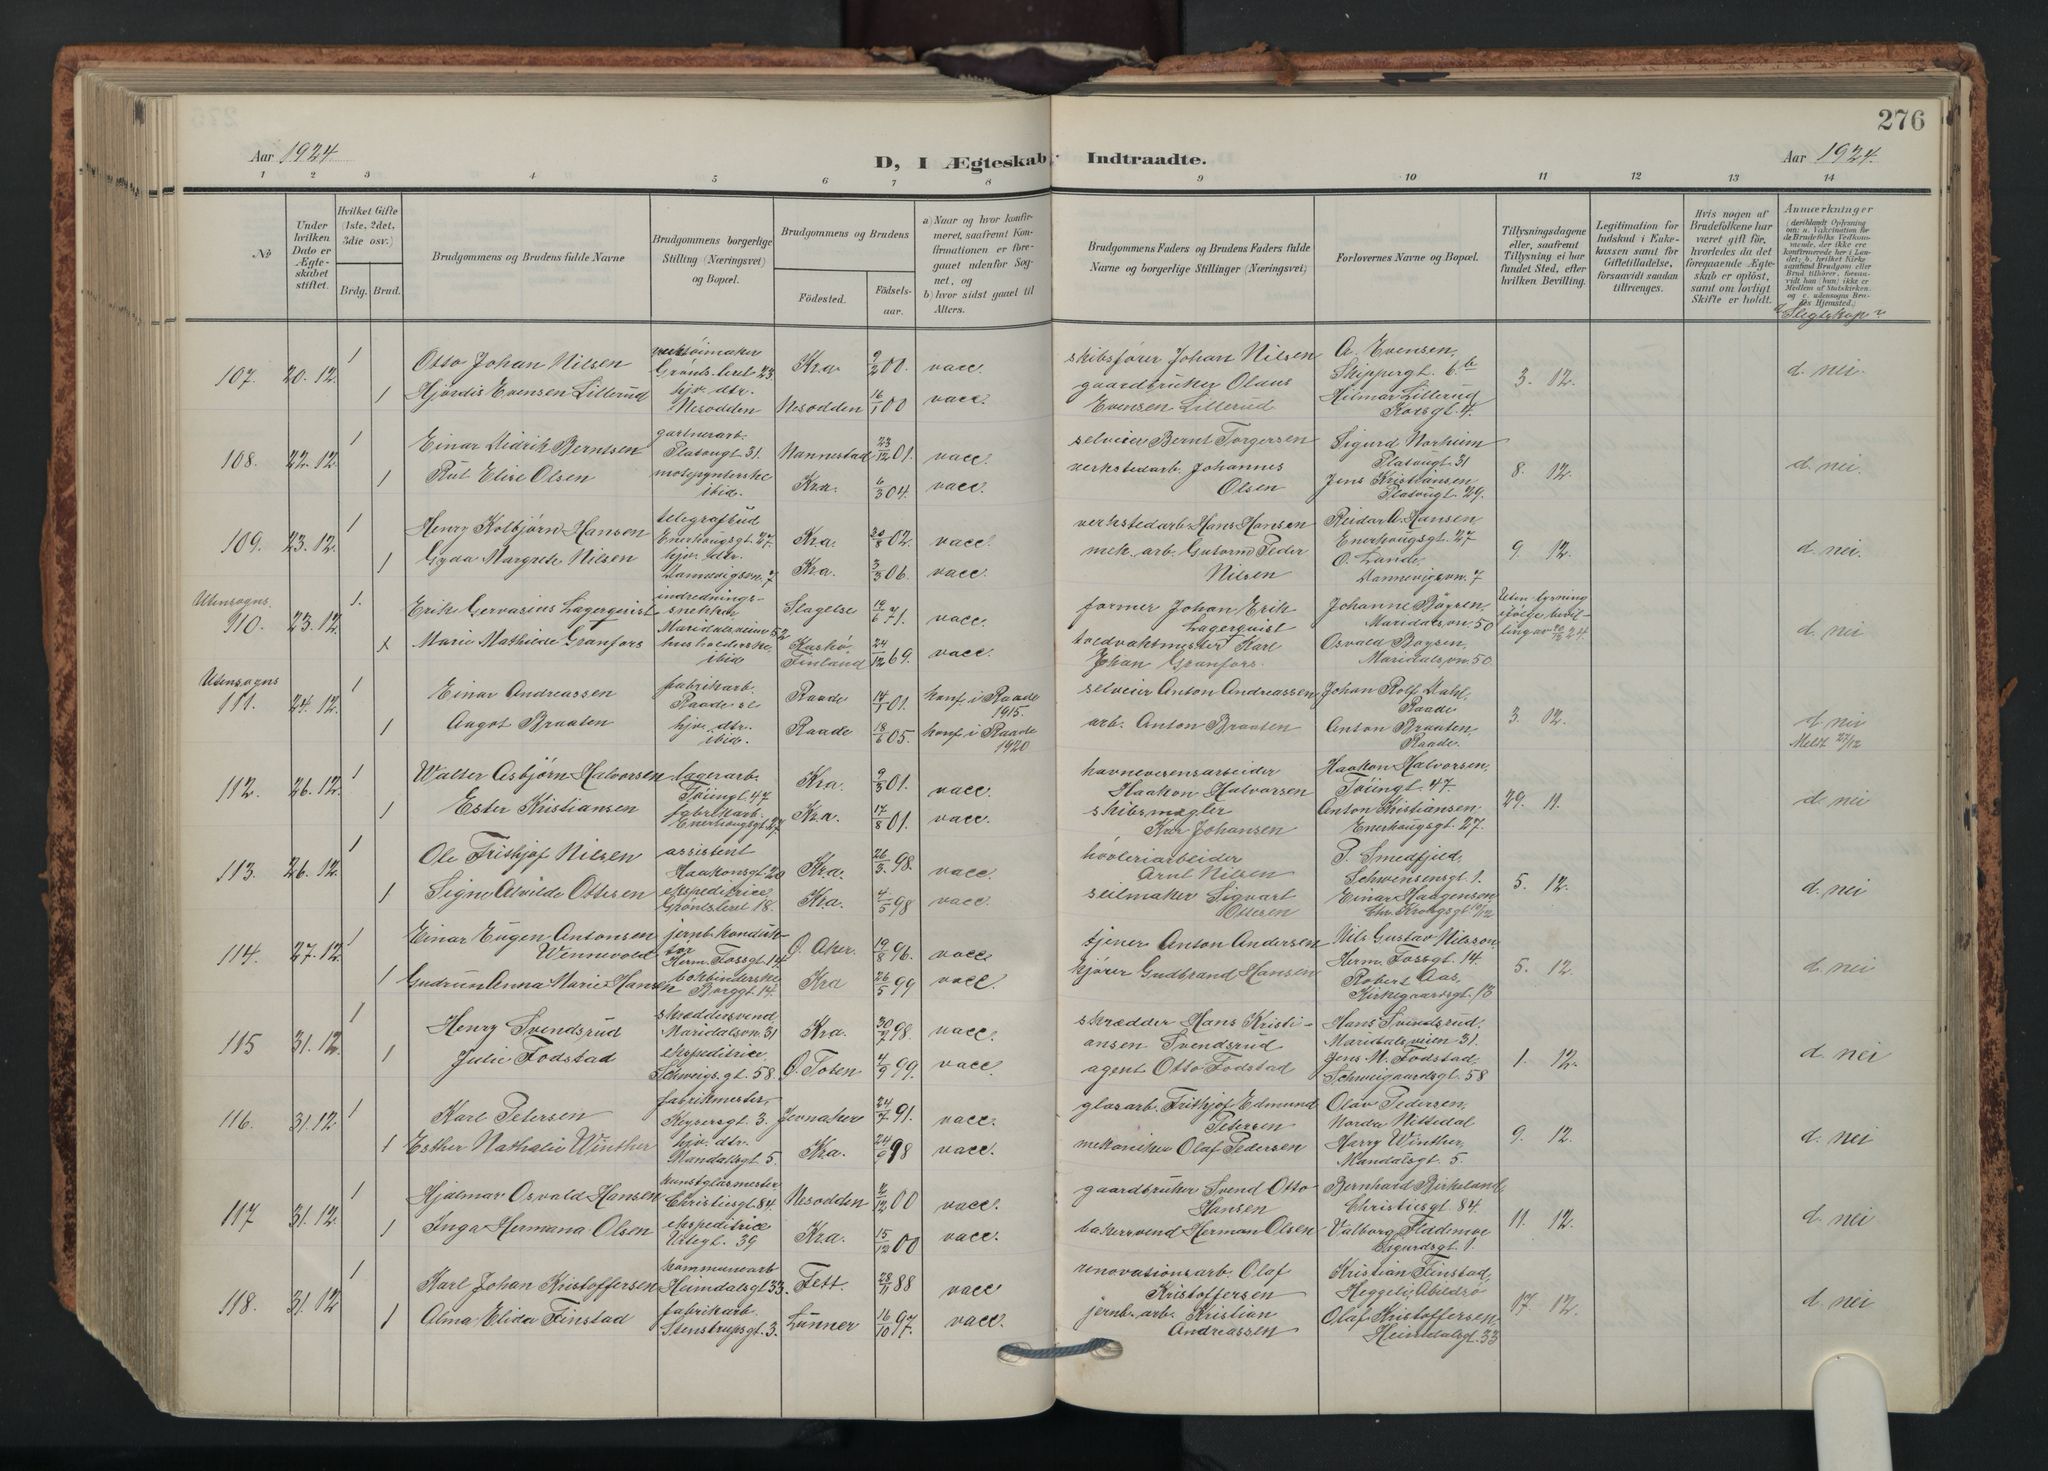 276
Aar 1924
D, I Ægteskab Indtraadte.
Aar 1924.
1 2 3 4 5 6 7 8 9 10 11 12 13 14
No
Under hvilken Dato er Ægteskabet stiftet.
Hvilket Gifte (1ste, 2det, 3die osv.)
Brdg. Brud.
Brudgommens og Brudens fulde Navne
Brudgommens borgerlige Stilling (Næringsvei) og Bopæl.
Brudgommens og Brudens
Födested.
Födselsaar.
a) Naar og hvor konfirmeret, saafremt Konfirmationen er foregaaet udenfor Sognet, og
b) hvor sidst gaaet til Alters.
Brudgommens Faders og Brudens Faders fulde Navne og borgerlige Stillinger (Næringsvei)
Forlovernes Navne og Bopæl.
Tillysningsdagene eller, saafremt Tillysning ei har fundet Sted, efter hvilken Bevilling.
Legitimation for Indskud i Enkekassen samt for Giftetilladelse, forsaavidt saadan tiltrænges.
Hvis nogen af Brudefolkene har været gift før, hvorledes da det foregaaende Ægteskab er oplöst, samt om lovligt Skifte er holdt.
Anmærkninger
(deriblandt Oplysning om: a. Vakcination for de Brudefolks Vedkommende, der ikke ere konfirmerede her i Landet; b. hvilket Kirkesamfund Brudgom eller Brud tilhörer, forsaavidt han (hun) ikke er Medlem af Statskirken, og c. udensogns Brudes Hjemsted.)
Slegtskap
107. 20. 12. 1 Otto Johan Nilsen verktøimaker Grønlsleret 23 Kra 9/2 00. vacc. skibsfører Johan Nilsen A. Evensen, Skippergt. 6b 3. 12. d. nei.
1 Hjørdis Evensen Lillerud hjv. dtr. Nesodden Nesodden 16/1 00 vacc. gaardbruker Olaus Evensen Lillerud Hilmar Lillerud Korsgt. 4.
108. 22. 12. 1 Einar Didrik Berntsen gartnerarb. Platougt 31. Nannestad 23/12 01. vacc. selveier Bernt Torgersen Sigurd Norheim Platougt 31 8. 12. d. nei.
1 Rut Elise Olsen motepynterske ibid. Kra. 6/3 04. vacc. verkstedarb. Johannes Olsen Jens Kristiansen Platougt. 29.
109. 23. 12. 1 Henry Kolbjørn Hansen telegrafbud Enerhaugsgt. 27 Kra. 20/8 02. vacc. verkstedarb. Hans Hansen Reidar A. Hansen, Enerhougsgt. 27 9. 12. d. nei.
1 Gyda Margrete Nilsen hjv. dtr. Dannevigsvn. 7 Kra. 3/3 06. vacc. mek. arb. Gutorm Peder Nilsen O. Lande, Dannevigsvn. 7
Utensogns. 110. 23. 12. 1. Erik Gervasius Lagerqvist indredningssnekker Maridalsveien 52 Slagelse 19/6 71. vacc. former Johan Erik Lagerquist Johanne Bøysen, Maridalsvn 50 Uten lysning ifølge bevilling av 20/12 24. d. nei
x Marie Mathilde Granfors husholderske ibid Kaskø, Finland 24/12 69. vacc. toldvaktmester Karl Johan Granfors. Osvald Boysen, Maridalsvn. 50.
Utensogns 111. 24. 12. 1 Einar Andreassen fabrikarb. Raade st Raade 14/1 01. konf. i Raade 1915. selveier Anton Andreassen Johan Rolf Dahl, Raade 3. 12. d. nei
1 Aagot Braaten hjv. dtr. ibid. Raade 18/6 05. konf. i Raade 1920 arb. Anton Braaten Anton Braaten, Raade. Meldt 27/12
112. 26. 12. 1 Walter Asbjørn Halvorsen lagerarb. Tøiengt. 47 Kra. 9/3 01. vacc. havnevesensarbeider Haakon Halvorsen Haakon Halvorsen, Tøiengt. 47 29. 11. d. nei
1 Ester Kristiansen fabrikarb. Enerhougsgt. 27 Kra. 17/8 01. vacc. skibsmægler Kar Johansen Anton Kristiansen, Enerhougsgt. 27.
113. 26. 12. 1 Ole Frithjof Nilsen assistent Haakonsgt. 20 Kra. 26/3 98. vacc. høvleriarbeider Arnt Nilsen P. Smedfjeld, Schwensensgt. 1. 5. 12. d. nei
1 Signe Alvilde Ottesen ekspeditrice Grønlsleret 18. Kra. 4/5 98 vacc. seilmaker Sigvart Ottesen Einar Haagensen Chr. Krohgsgt 10/12
114. 27. 12. 1 Einar Eugen Antonsen Wennevold jernb. konduktør Herm. Fossgt. 14 Ø. Aker 19/8 96. vacc tjener Anton Andersen Nils Gustav Nilsson, Herm. Fossgt. 14. 5. 12. d. nei
1 Gudrun Anna Marie Hansen bokbinderske Borggt. 14. Kra 26/5 99 vacc. kjører Gudbrand Hansen Robert Aas, Kirkegaardsgt. 13
115 31. 12. 1 Henry Svendsrud skræddersvend Maridalsvn. 31 Kra. 30/7 98. vacc. skrædder Hans Kristiansen Svendsrud Hans Svendsrud, Maridalsveien 31. 1. 12. d. nei
1 Julie Fodstad ekspeditrice Schweigs. gt. 58 Ø. Toten 4/9 99. vacc. agent Otto Fodstad Jens M. Fodstad, Schweigaardsgt. 58
116. 31. 12. 1 Karl Petersen fabrikmester, Keysersgt. 3. Jevnaker 24/7 91. vacc. glasarb. Frithjof Edmund Petersen Olav Pedersen, Nordre Nittedal 9. 12. d. nei
1 Esther Nathalie Winther hjv. dtr. Mandalsgt. 5. Kra. 24/9 98 vacc. mekaniker Olaf Pedersen Harry Winther, Mandalsgt. 5.
117 31. 12. 1 Hjalmar Osvald Hansen kunstglasmester Christiesgt. 84 Nesodden 2/12 00 vacc. gaardbruker Svend Otto Hansen Bernhard Birkeland, Christiesgt. 84. 11. 12. d. nei
1 Inga Hermana Olsen ekspeditrice Urtegt. 39 Kra. 15/12 00 vacc. bakersvend Herman Olsen Valborg Sigurdsgt. 1.
118. 31. 12 1 Karl Johan Kristoffersen kommunearb Heimdalsgt 33. Fett. 28/11 88 vacc renovationsarb. Olaf Kristoffersen Kristian Finstad, Heggeli, Abildsø 17. 12. d. nei
1 Alma Elida Finstad fabrikarb. Stenstrupsgt. 3. Lunner 16/10 97. vacc. jernb. arb. Kristian Andreassen Olaf Kristoffersen, Heimdalsgt. 33